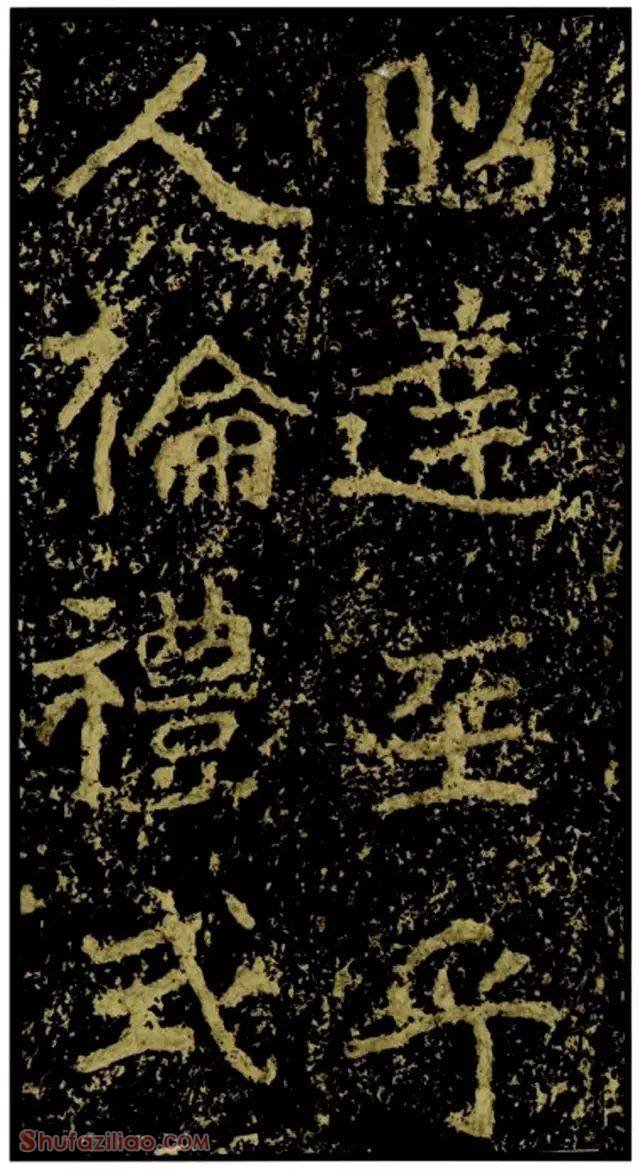 昭達至乎
人倫禮式
Shufaziliao.COM